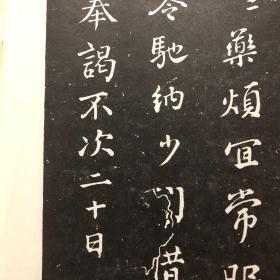 藥煩宜常服
令馳納少別惜
奉謁不次二十日